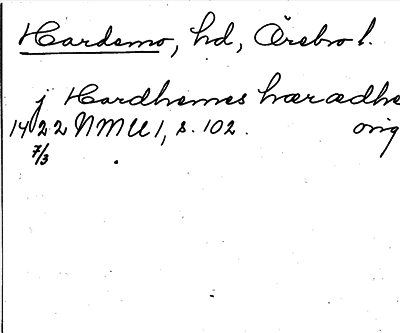 Hardemo, hd, Örebro l.
j Hardhemes hæradhe
1422 NMU 1, s. 102. orig
7/3